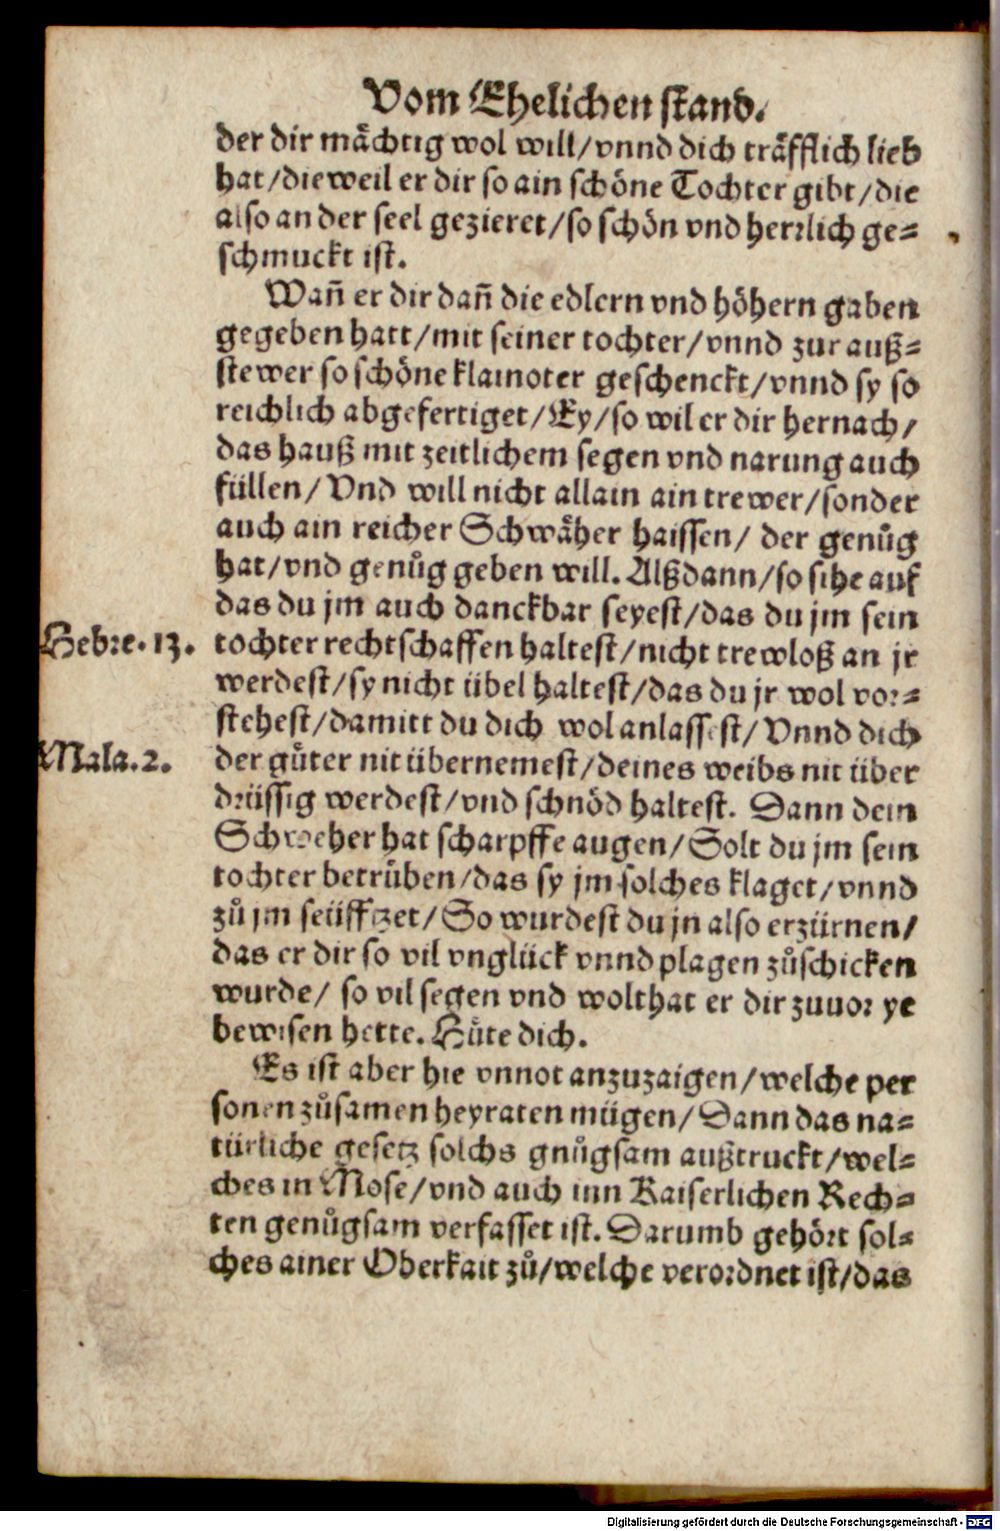 Vom Ehelichen stand.
der dir mächtig wol will/vnnd dich träfflich lieb
hat/dieweil er dir so ain schöne Tochter gibt/die
also an der seel gezieret/so schön vnd herrlich ge=
schmuckt ist.
Wañ er dir dañ die edlern vnd höhern gaben
gegeben hatt/mit seiner tochter/vnnd zur auß=
stewer so schöne klainoter geschenckt/vnnd sy so
reichlich abgefertiget/Ey/so wil er dir hernach/
das hauß mit zeitlichem segen vnd narung auch
füllen/Vnd will nicht allain ain trewer/sonder
auch ain reicher Schwäher haissen/ der genůg
hat/vnd genůg geben will. Alßdann/so sihe auf
das du jm auch danckbar seyest/das du jm sein
Hebre. 13. tochter rechtschaffen haltest/nicht trewloß an jr
werdest/sy nicht übel haltest/das du jr wol vor=
stehest/damitt du dich wol anlassest/Vnnd dich
Mala. 2. der gůter nit übernemest/deines weibs nit über
drüssig werdest/vnd schnöd haltest. Dann dein
Schweher hat scharpffe augen/Solt du jm sein
tochter betrůben/das sy jm solches klaget/vnnd
zů jm seüfftzet/So wurdest du jn also erzürnen/
das er dir so vil vnglück vnnd plagen zůschicken
wurde/ so vil segen vnd wolthat er dir zuuor ye
bewisen hette. Hůte dich.
Es ist aber hie vnnot anzuzaigen/welche per
sonen zůsamen heyraten mügen/Dann das na=
türliche gesetz solchs gnůgsam außtruckt/wel=
ches in Mose/vnd auch inn Kaiserlichen Rech=
ten genůgsam verfasset ist. Darumb gehört sol=
ches ainer Oberkait zů/welche verordnet ist/das
Digitalisierung gefördert durch die Deutsche Forschungsgemeinschaft - DFG